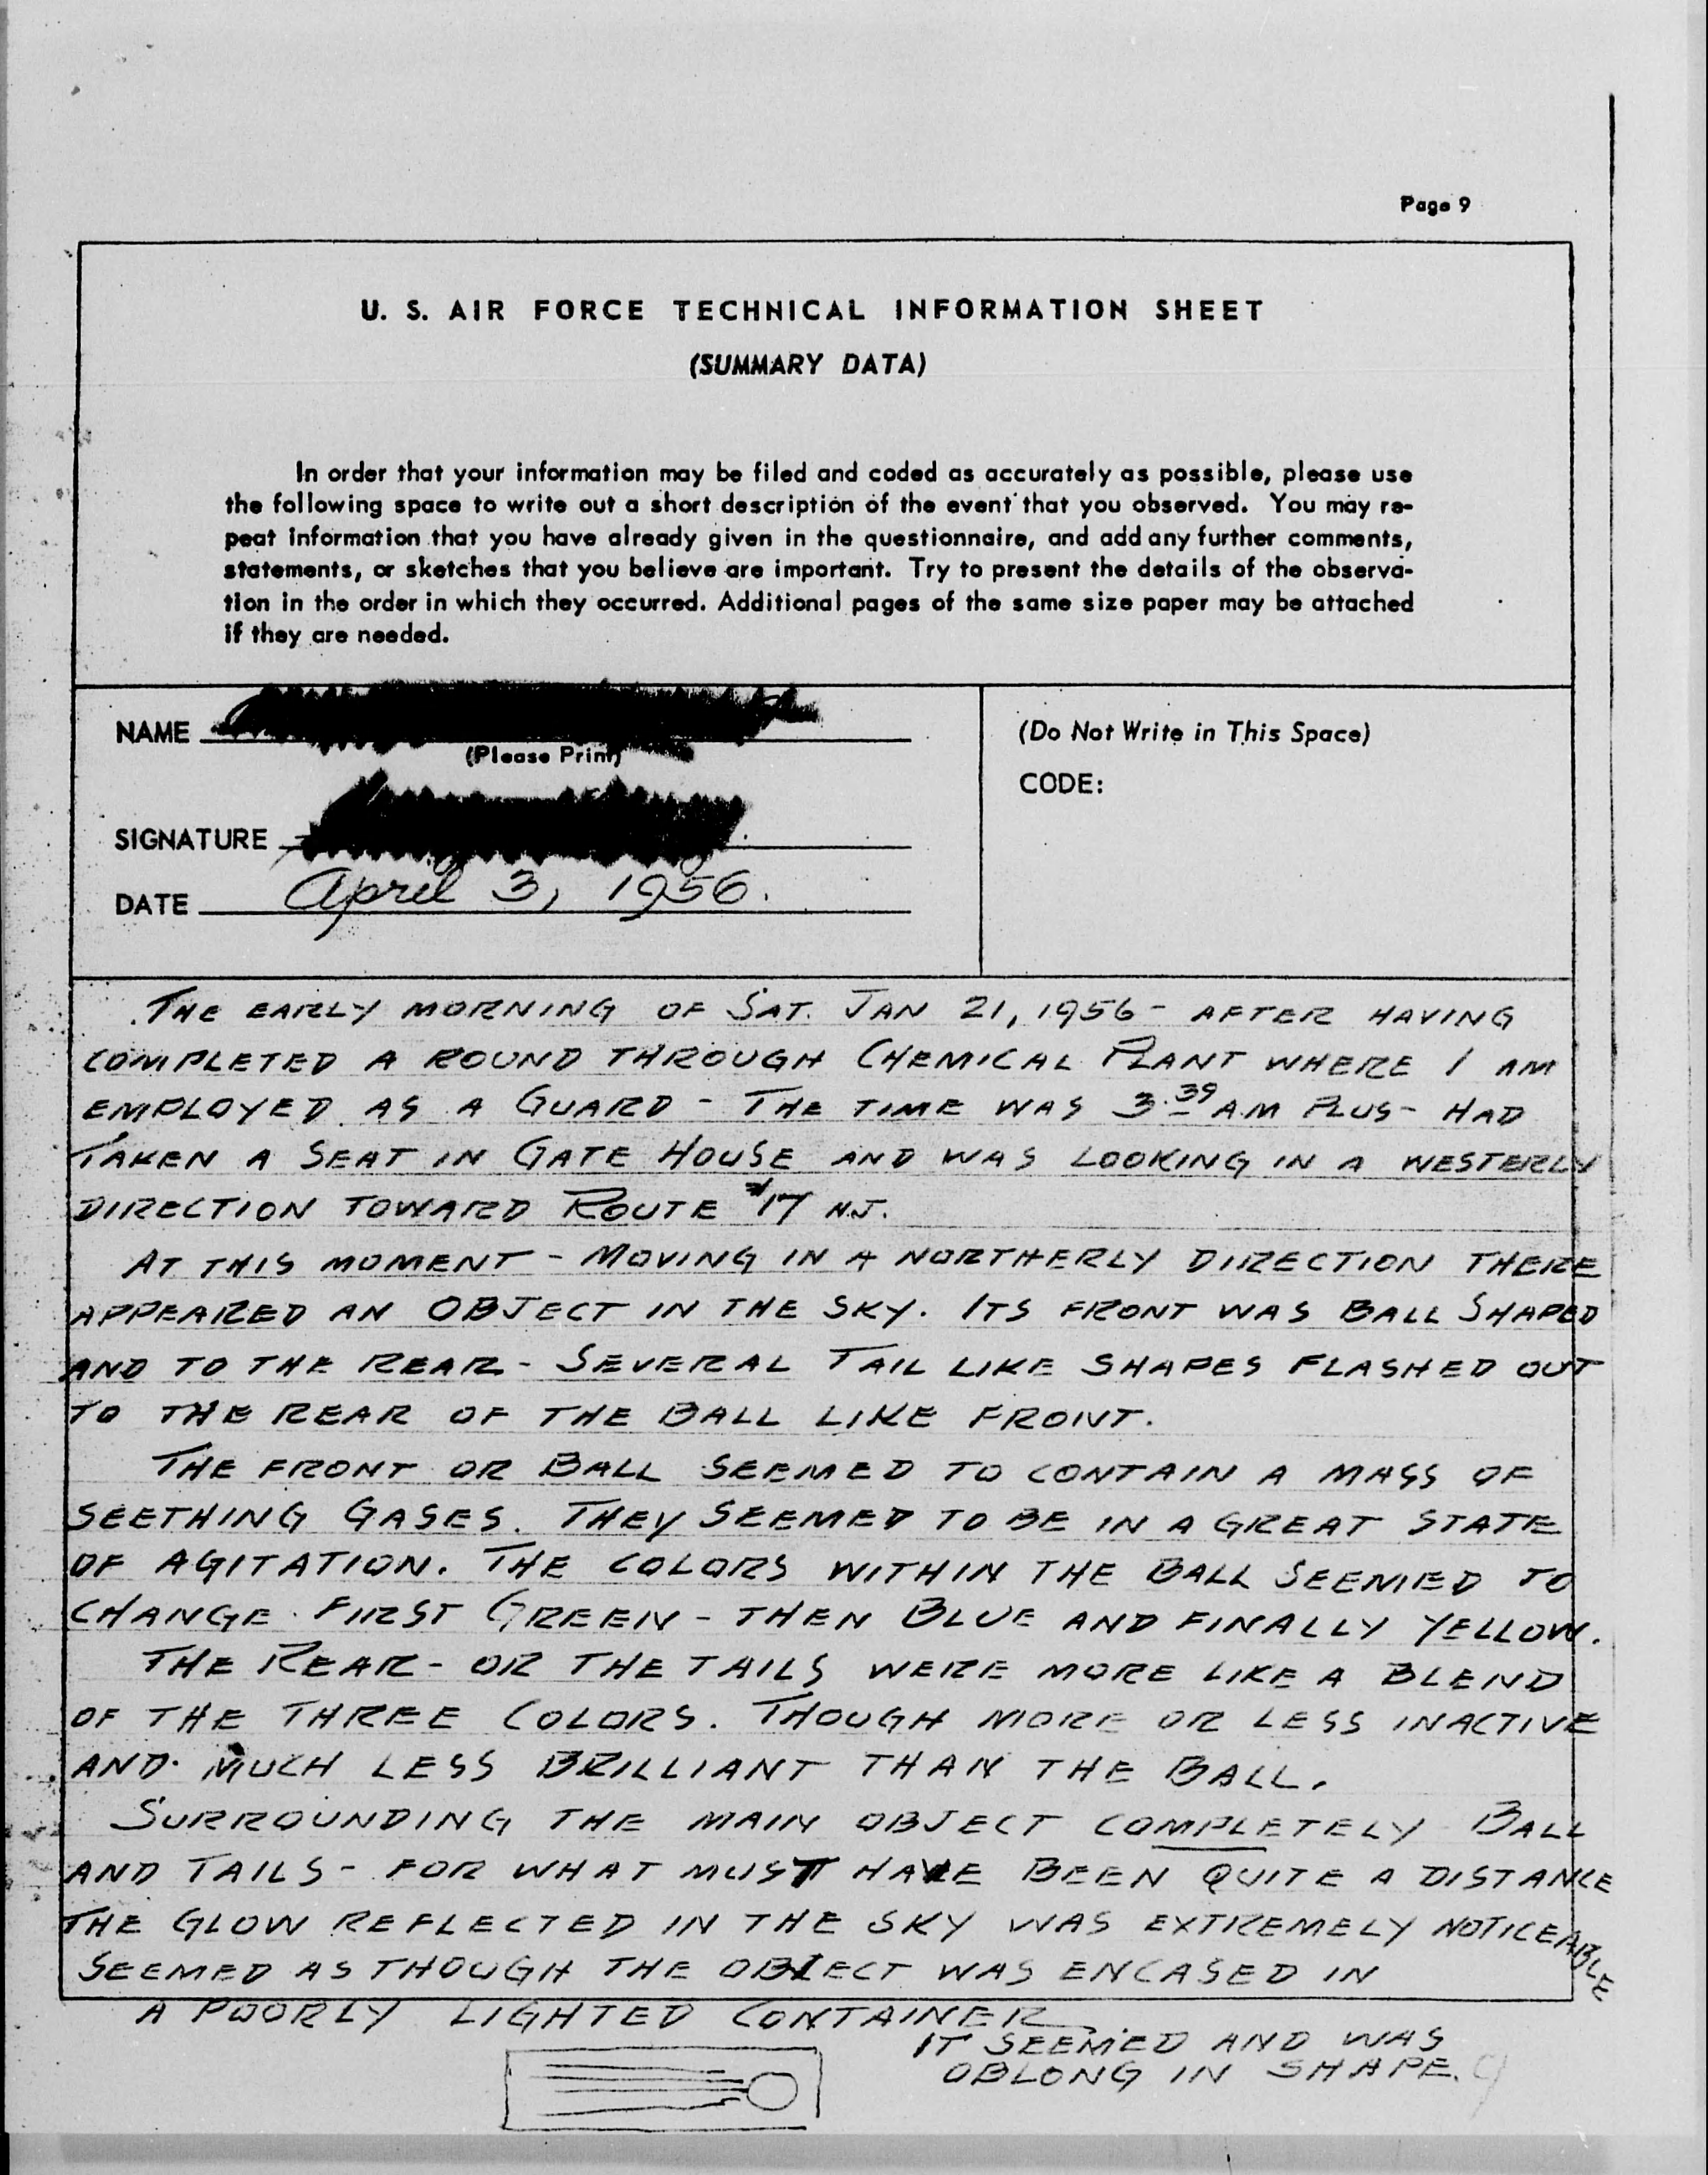 Page 9
U. S. AIR FORCE TECHNICAL INFORMATION SHEET
(SUMMARY DATA)
In order that your information may be filed and coded as accurately as possible, please use
the following space to write out a short description of the event that you observed. You may re-
peat information that you have already given in the questionnaire, and add any further comments,
statements, or sketches that you believe are important. Try to present the details of the observa-
tion in the order in which they occurred. Additional pages of the same size paper may be attached
if they are needed.
NAME
(Please Print)
SIGNATURE
DATE April 3, 1956.
(Do Not Write in This Space)
CODE:
THE EARLY MORNING OF SAT. JAN 21, 1956 - AFTER HAVING
COMPLETED A ROUND THROUGH CHEMICAL PLANT WHERE I AM
EMPLOYED AS A GUARD - THE TIME WAS 3.39 AM PLUS - HAD
TAKEN A SEAT IN GATE HOUSE AND WAS LOOKING IN A WESTERLY
DIRECTION TOWARD ROUTE #17 N.J.
AT THIS MOMENT - MOVING IN A NORTHERLY DIRECTION THERE
APPEARED AN OBJECT IN THE SKY. ITS FRONT WAS BALL SHAPED
AND TO THE REAR - SEVERAL TAIL LIKE SHAPES FLASHED OUT
TO THE REAR OF THE BALL LIKE FRONT.
THE FRONT OR BALL SEEMED TO CONTAIN A MASS OF
SEETHING GASES. THEY SEEMED TO BE IN A GREAT STATE
OF AGITATION. THE COLORS WITHIN THE BALL SEEMED TO
CHANGE. FIRST GREEN - THEN BLUE AND FINALLY YELLOW.
THE REAR - OR THE TAILS WERE MORE LIKE A BLEND
OF THE THREE COLORS. THOUGH MORE OR LESS INACTIVE
AND MUCH LESS BRILLIANT THAN THE BALL.
SURROUNDING THE MAIN OBJECT COMPLETELY BALL
AND TAILS - FOR WHAT MUST HAVE BEEN QUITE A DISTANCE
THE GLOW REFLECTED IN THE SKY WAS EXTREMELY NOTICEABLE
SEEMED AS THOUGH THE OBJECT WAS ENCASED IN
A POORLY LIGHTED CONTAINER.
IT SEEMED AND WAS
OBLONG IN SHAPE. 9